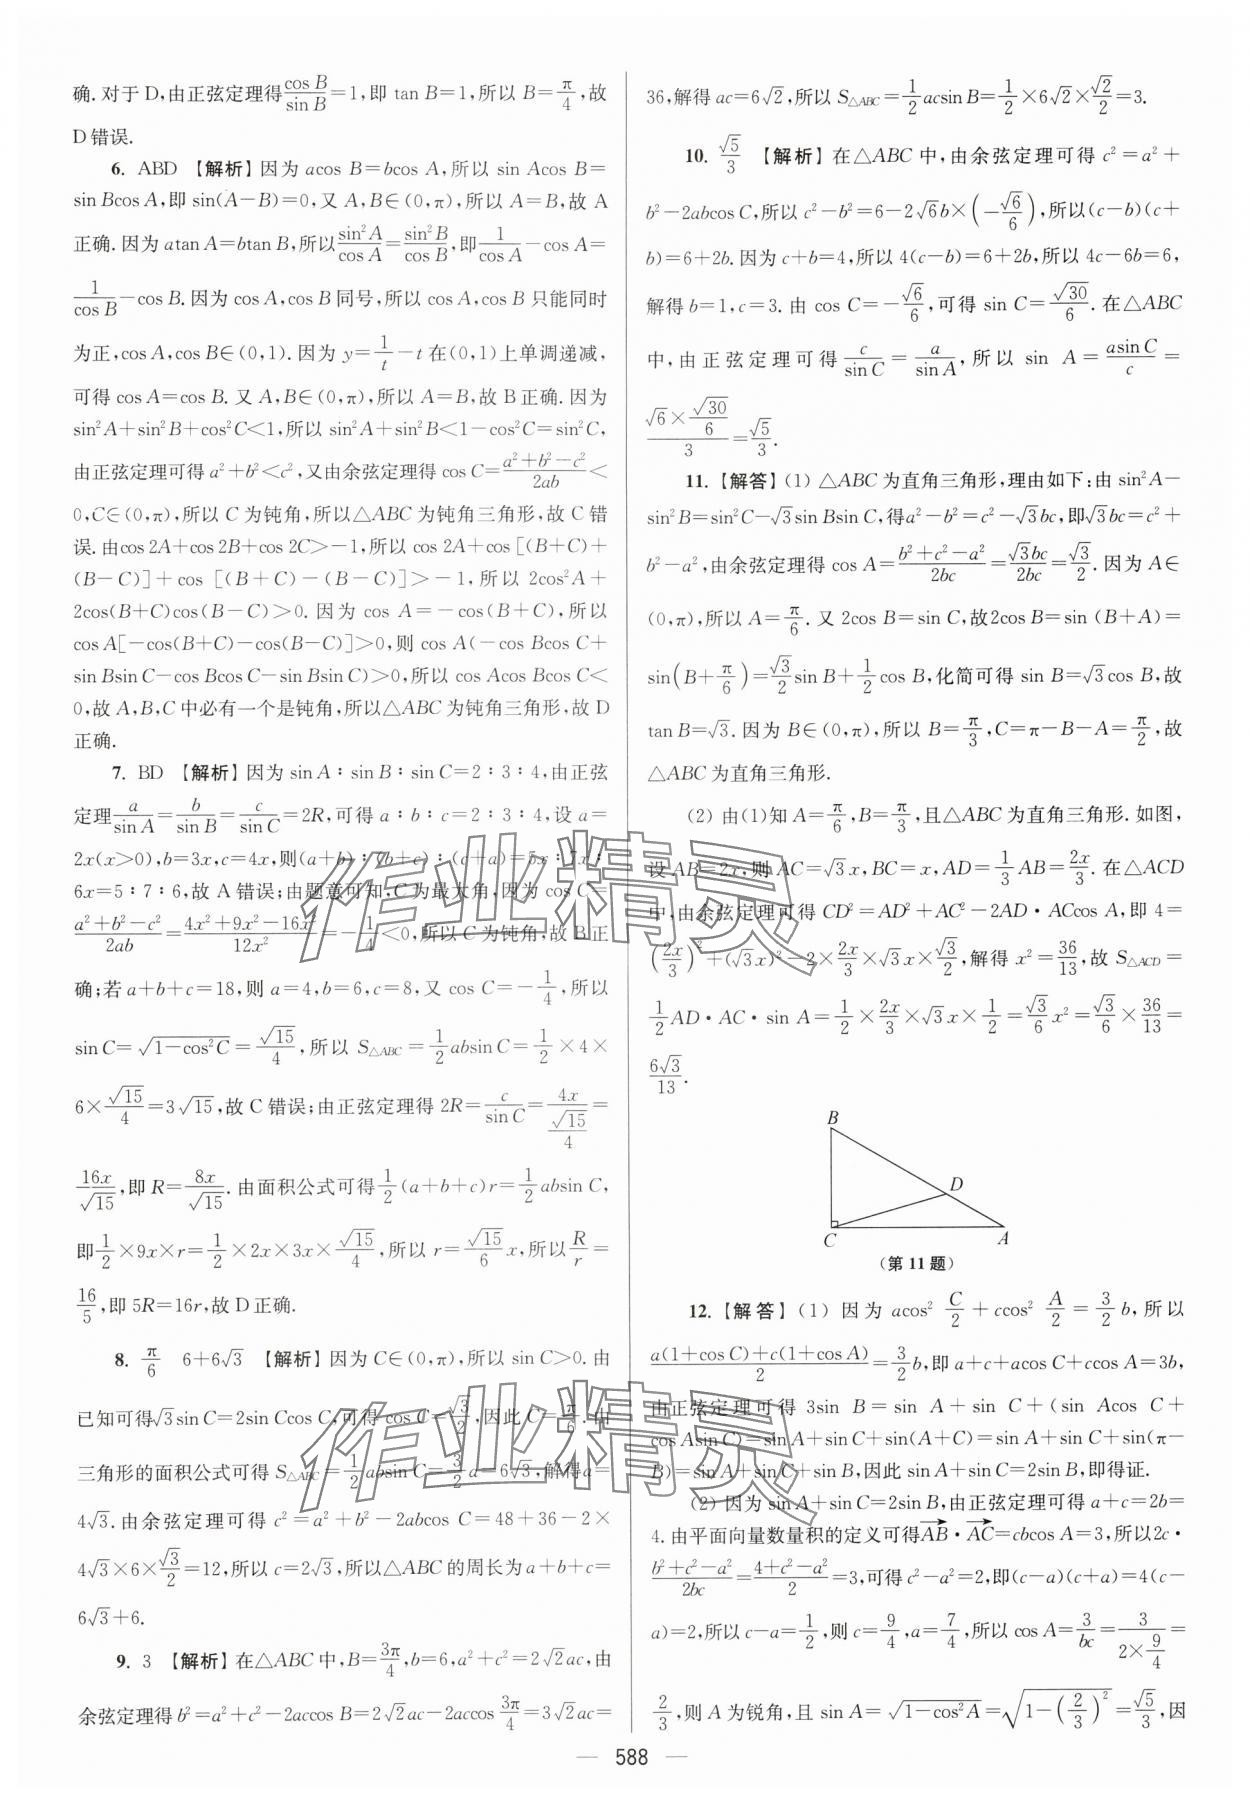 确.对于 D,由正弦定理得cos B/sin B=1,即 tan B=1,所以 B=π/4,故
D 错误.
6. ABD 【解析】因为 acos B=bcos A,所以 sin Acos B=
sin Bcos A,即 sin(A-B)=0,又 A,B∈(0,π),所以 A=B,故 A
正确.因为 atan A=btan B,所以sin²A/cos A=sin²B/cos B,即1/cos A-cos A=
1/cos B-cos B.因为 cos A,cos B 同号,所以 cos A,cos B 只能同时
为正,cos A,cos B∈(0,1).因为 y=1/t-t 在(0,1)上单调递减,
可得 cos A=cos B.又 A,B∈(0,π),所以 A=B,故 B 正确.因为
sin²A+sin²B+cos²C<1,所以 sin²A+sin²B<1-cos²C=sin²C,
由正弦定理可得 a²+b²<c²,又由余弦定理得 cos C=(a²+b²-c²)/2ab<
0,C∈(0,π),所以 C 为钝角,所以△ABC 为钝角三角形,故 C 错
误.由cos 2A+cos 2B+cos 2C>-1,所以 cos 2A+cos [(B+C)+
(B-C)]+cos [(B+C)-(B-C)]>-1,所以 2cos²A+
2cos(B+C)cos(B-C)>0.因为 cos A=-cos(B+C),所以
cos A[-cos(B+C)-cos(B-C)]>0,则 cos A(-cos Bcos C+
sin Bsin C-cos Bcos C-sin Bsin C)>0,所以 cos Acos Bcos C<
0,故 A,B,C 中必有一个是钝角,所以△ABC 为钝角三角形,故 D
正确.
7. BD 【解析】因为 sin A∶sin B∶sin C=2∶3∶4,由正弦
定理a/sin A=b/sin B=c/sin C=2R,可得 a∶b∶c=2∶3∶4,设 a=
2x(x>0),b=3x,c=4x,则(a+b)∶(b+c)∶(c+a)=5x∶7x∶
6x=5∶7∶6,故 A 错误;由题意可知,C 为最大角,因为 cos C=
(a²+b²-c²)/2ab=(4x²+9x²-16x²)/12x²=-1/4<0,所以 C 为钝角,故 B 正
确;若 a+b+c=18,则 a=4,b=6,c=8,又 cos C=-1/4,所以
sin C=√(1-cos²C)=√15/4,所以 S△ABC=1/2absin C=1/2×4×
6×√15/4=3√15,故 C 错误;由正弦定理得 2R=c/sin C=4x/(√15/4)=
16x/√15,即 R=8x/√15.由面积公式可得1/2(a+b+c)r=1/2absin C,
即1/2×9x×r=1/2×2x×3x×√15/4,所以 r=√15/6x,所以R/r=
16/5,即 5R=16r,故 D 正确.
8. π/6 6+6√3 【解析】因为 C∈(0,π),所以 sin C>0.由
已知可得√3sin C=2sin Ccos C,可得 cos C=√3/2,因此 C=π/6.由
三角形的面积公式可得 S△ABC=1/2absin C=3/2a=6√3,解得 a=
4√3.由余弦定理可得 c²=a²+b²-2abcos C=48+36-2×
4√3×6×√3/2=12,所以 c=2√3,所以△ABC 的周长为 a+b+c=
6√3+6.
9. 3 【解析】在△ABC 中,B=3π/4,b=6,a²+c²=2√2ac,由
余弦定理得 b²=a²+c²-2accos B=2√2ac-2accos 3π/4=3√2ac=
36,解得 ac=6√2,所以 S△ABC=1/2acsin B=1/2×6√2×√2/2=3.
10. √5/3 【解析】在△ABC 中,由余弦定理可得 c²=a²+
b²-2abcos C,所以 c²-b²=6-2√6b×(-√6/6),所以(c-b)(c+
b)=6+2b.因为 c+b=4,所以 4(c-b)=6+2b,所以 4c-6b=6,
解得 b=1,c=3.由 cos C=-√6/6,可得 sin C=√30/6.在△ABC
中,由正弦定理可得 c/sin C=a/sin A,所以 sin A=asin C/c=
(√6×√30/6)/3=√5/3.
11.【解答】(1) △ABC 为直角三角形,理由如下:由 sin²A-
sin²B=sin²C-√3sin Bsin C,得a²-b²=c²-√3bc,即√3bc=c²+
b²-a²,由余弦定理可得 cos A=(b²+c²-a²)/2bc=√3bc/2bc=√3/2.因为 A∈
(0,π),所以 A=π/6.又 2cos B=sin C,故2cos B=sin (B+A)=
sin(B+π/6)=√3/2sin B+1/2cos B,化简可得 sin B=√3cos B,故
tan B=√3.因为 B∈(0,π),所以 B=π/3,C=π-B-A=π/2,故
△ABC 为直角三角形.
(2) 由(1)知 A=π/6,B=π/3,且△ABC 为直角三角形.如图,
设 AB=2x,则 AC=√3x,BC=x,AD=1/3AB=2x/3.在△ACD
中,由余弦定理可得 CD²=AD²+AC²-2AD·ACcos A,即 4=
(2x/3)²+(√3x)²-2×2x/3×√3x×√3/2,解得 x²=36/13,故 S△ACD=
1/2AD·AC·sin A=1/2×2x/3×√3x×1/2=√3/6x²=√3/6×36/13=
6√3/13.
B
D
C
A
(第 11 题)
12.【解答】(1) 因为 acos² C/2+ccos² A/2=3/2b,所以
(a(1+cos C)+c(1+cos A))/2=3/2b,即 a+c+acos C+ccos A=3b,
由正弦定理可得 3sin B=sin A+sin C+(sin Acos C+
cos Asin C)=sin A+sin C+sin(A+C)=sin A+sin C+sin(π-
B)=sin A+sin C+sin B,因此 sin A+sin C=2sin B,即得证.
(2) 因为 sin A+sin C=2sin B,由正弦定理可得 a+c=2b=
4.由平面向量数量积的定义可得AB·AC=cbcos A=3,所以2c·
(b²+c²-a²)/2bc=(4+c²-a²)/2=3,可得 c²-a²=2,即(c-a)(c+a)=4(c-
a)=2,所以 c-a=1/2,则 c=9/4,a=7/4,所以 cos A=3/bc=3/(2×9/4)=
2/3,则 A 为锐角,且 sin A=√(1-cos²A)=√(1-(2/3)²)=√5/3,因
— 588 —
作业精灵
作业精灵